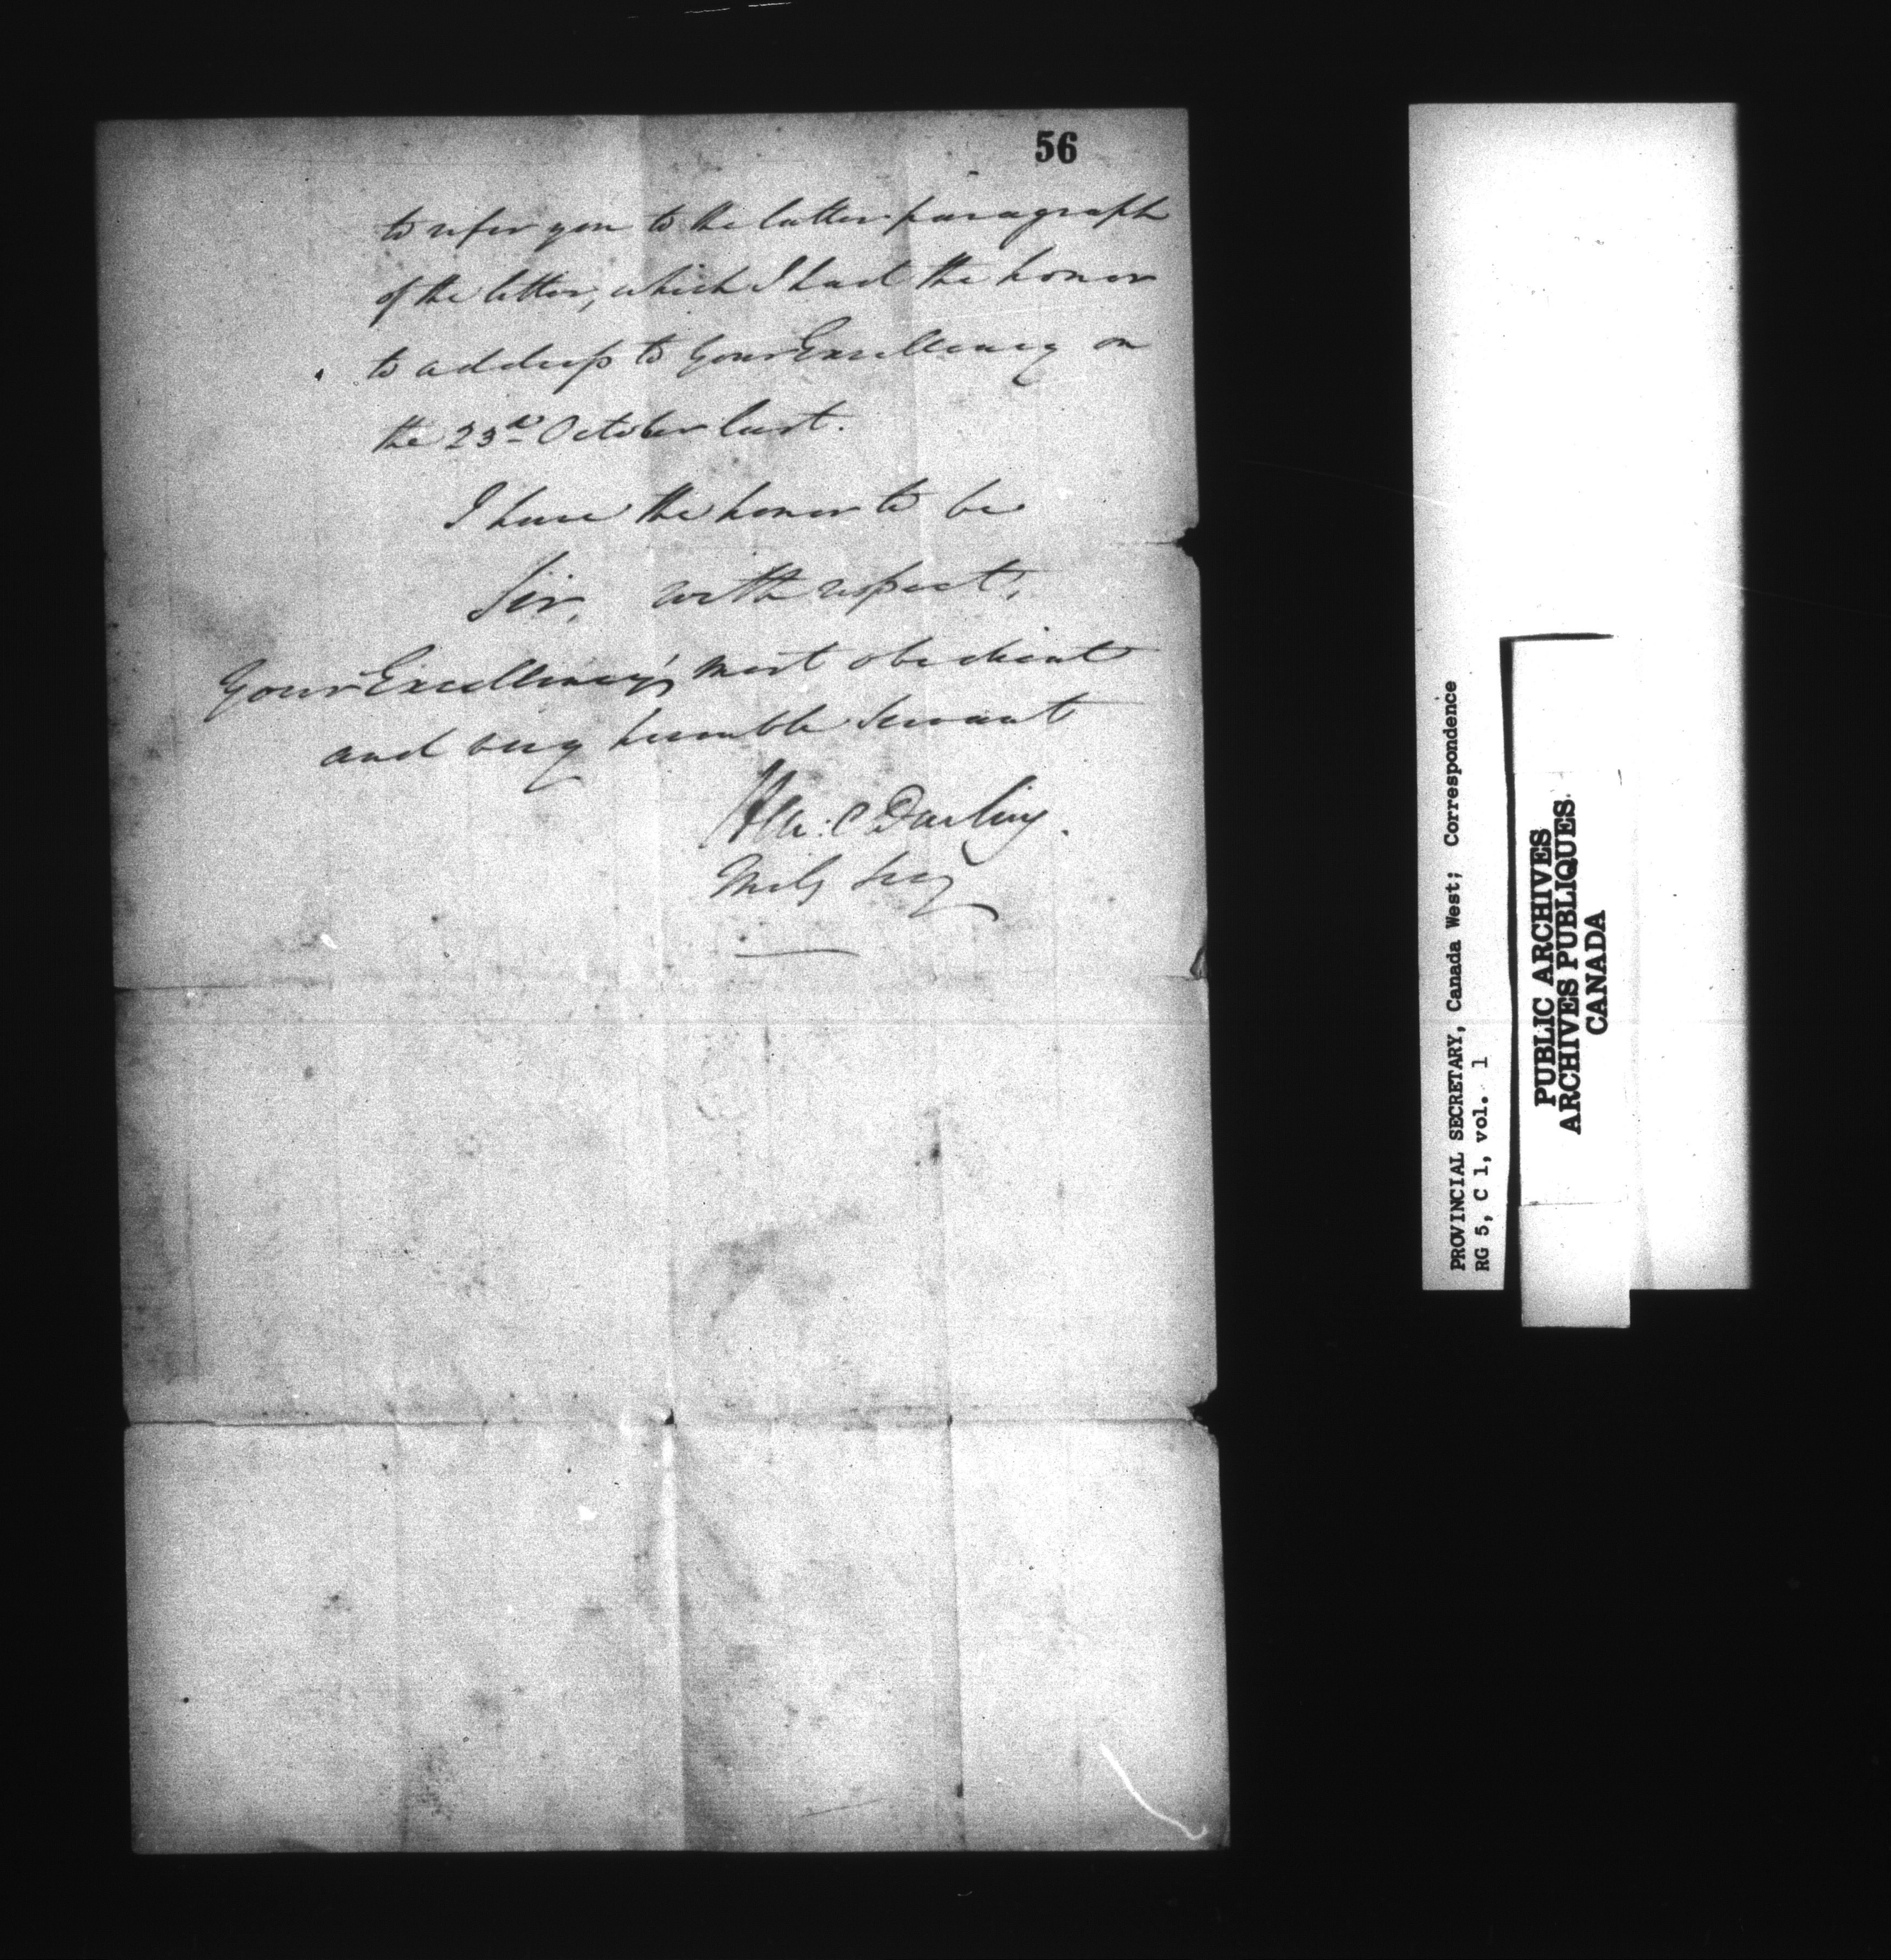 56
to refer you to the latter paragraph
of the letter, which I had the honor
to address to Your Excellency on
the 23rd October last.
I have the honor to be
Sir, with respect,
Your Excellency's most obedient
and very humble Servant
C Darling.
Mily Secy
PROVINCIAL SECRETARY, Canada West; Correspondence
RG 5, C 1, vol. 1
PUBLIC ARCHIVES
ARCHIVES PUBLIQUES
CANADA